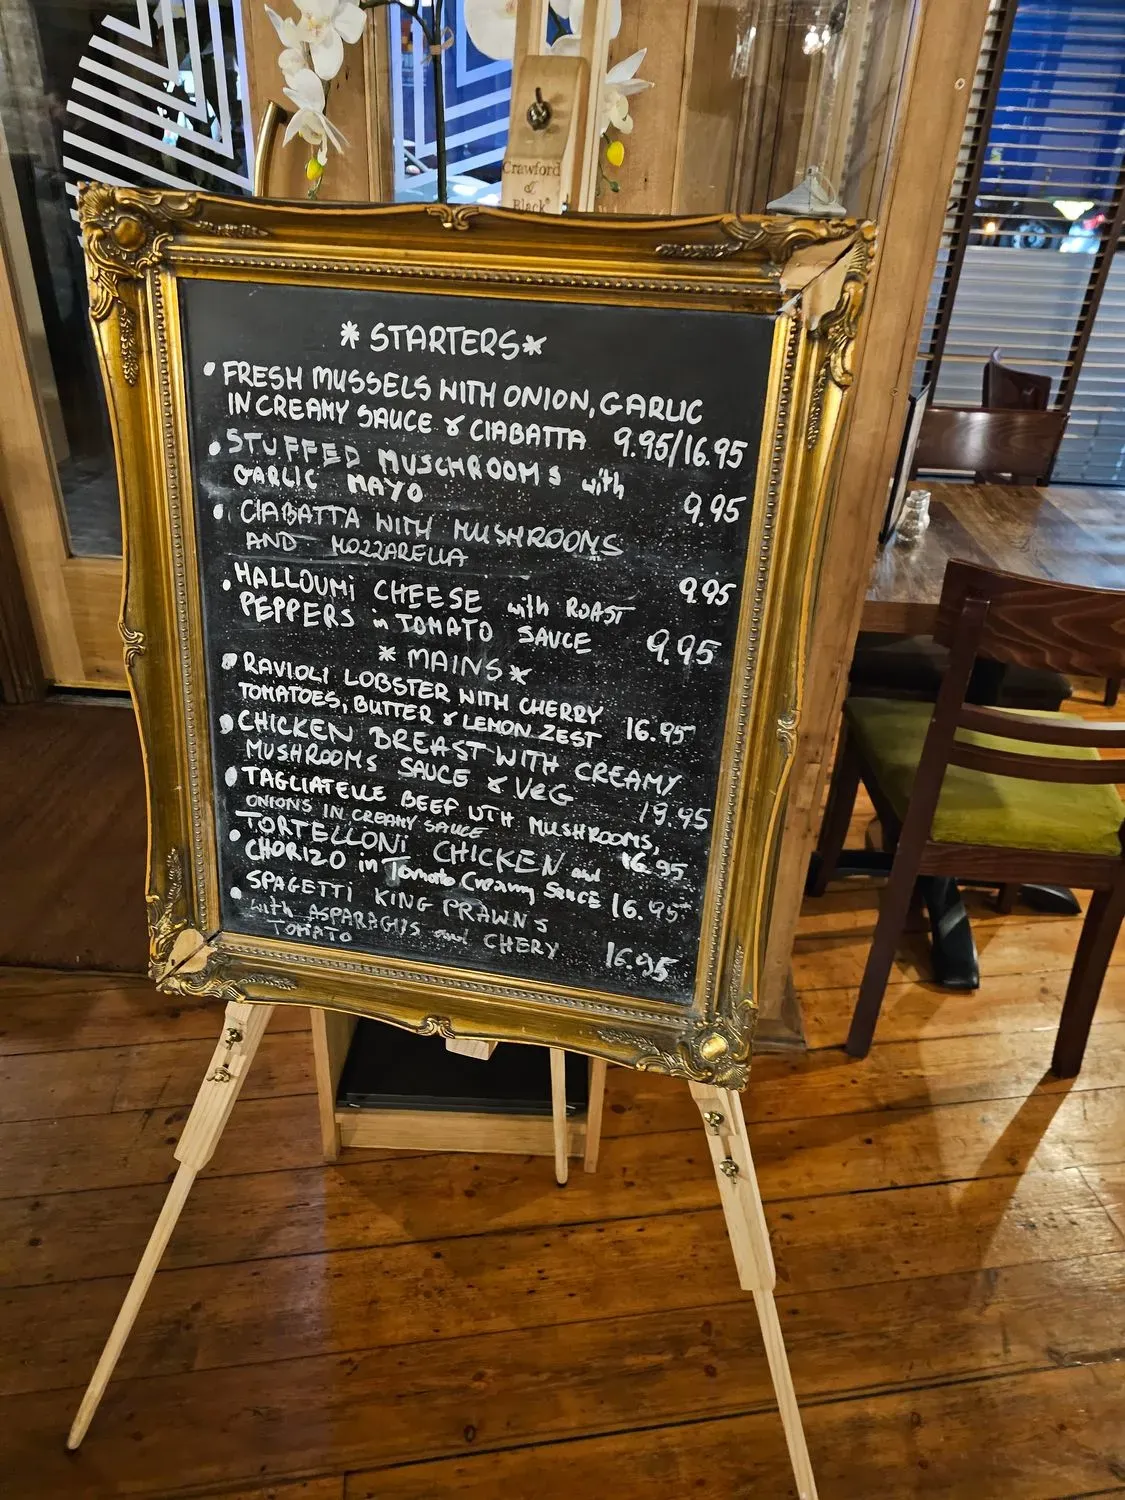 Crawford
&
Black
* STARTERS *
• FRESH MUSSELS WITH ONION, GARLIC
IN CREAMY SAUCE & CIABATTA 9.95/16.95
• STUFFED MUSCHROOMS with
GARLIC MAYO 9.95
• CIABATTA WITH MUSHROOMS
AND MOZZARELLA 9.95
• HALLOUMI CHEESE with ROAST
PEPPERS in TOMATO SAUCE 9.95
* MAINS *
• RAVIOLI LOBSTER WITH CHERRY
TOMATOES, BUTTER & LEMON ZEST 16.95
• CHICKEN BREAST WITH CREAMY
MUSHROOMS SAUCE & VEG 19.95
• TAGLIATELLE BEEF WTH MUSHROOMS,
ONIONS IN CREAMY SAUCE 16.95
• TORTELLONI CHICKEN and
CHORIZO in Tomato Creamy Sauce 16.95
• SPAGETTI KING PRAWNS
with ASPARAGUS and CHERY
TOMATO 16.95